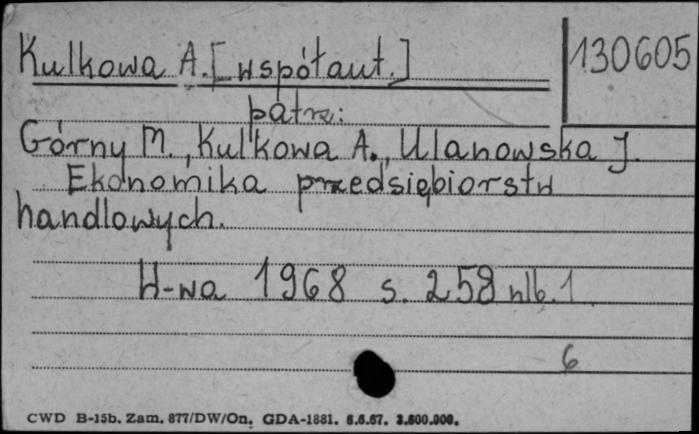 Kulkowa A. [współaut.]
130605
patrz:
Górny M., Kulkowa A., Ulanowska J.
Ekonomika przedsiębiorstw
handlowych.
W-wa 1968 s. 258 nlb. 1
6
CWD B-15b. Zam. 877/DW/On. GDA-1881. 6.6.67. 3.600.000.